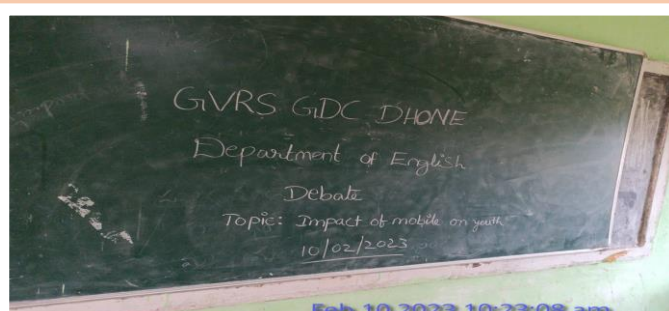 GVRS GDC DHONE
Department of English
Debate
Topic: Impact of mobile on youth
10/02/2023
Feb 10 2023 10:23:08 am